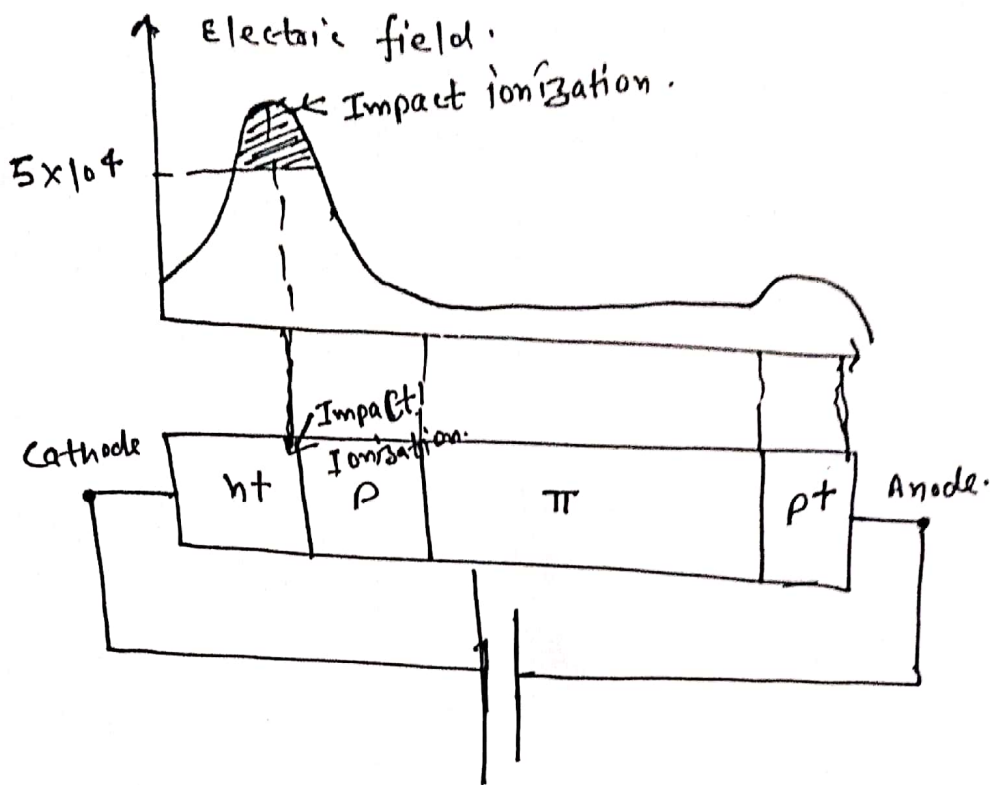 Electric field.
Impact ionization.
5×10⁴
Impact
Ionization.
Cathode
n+
P
π
p+
Anode.